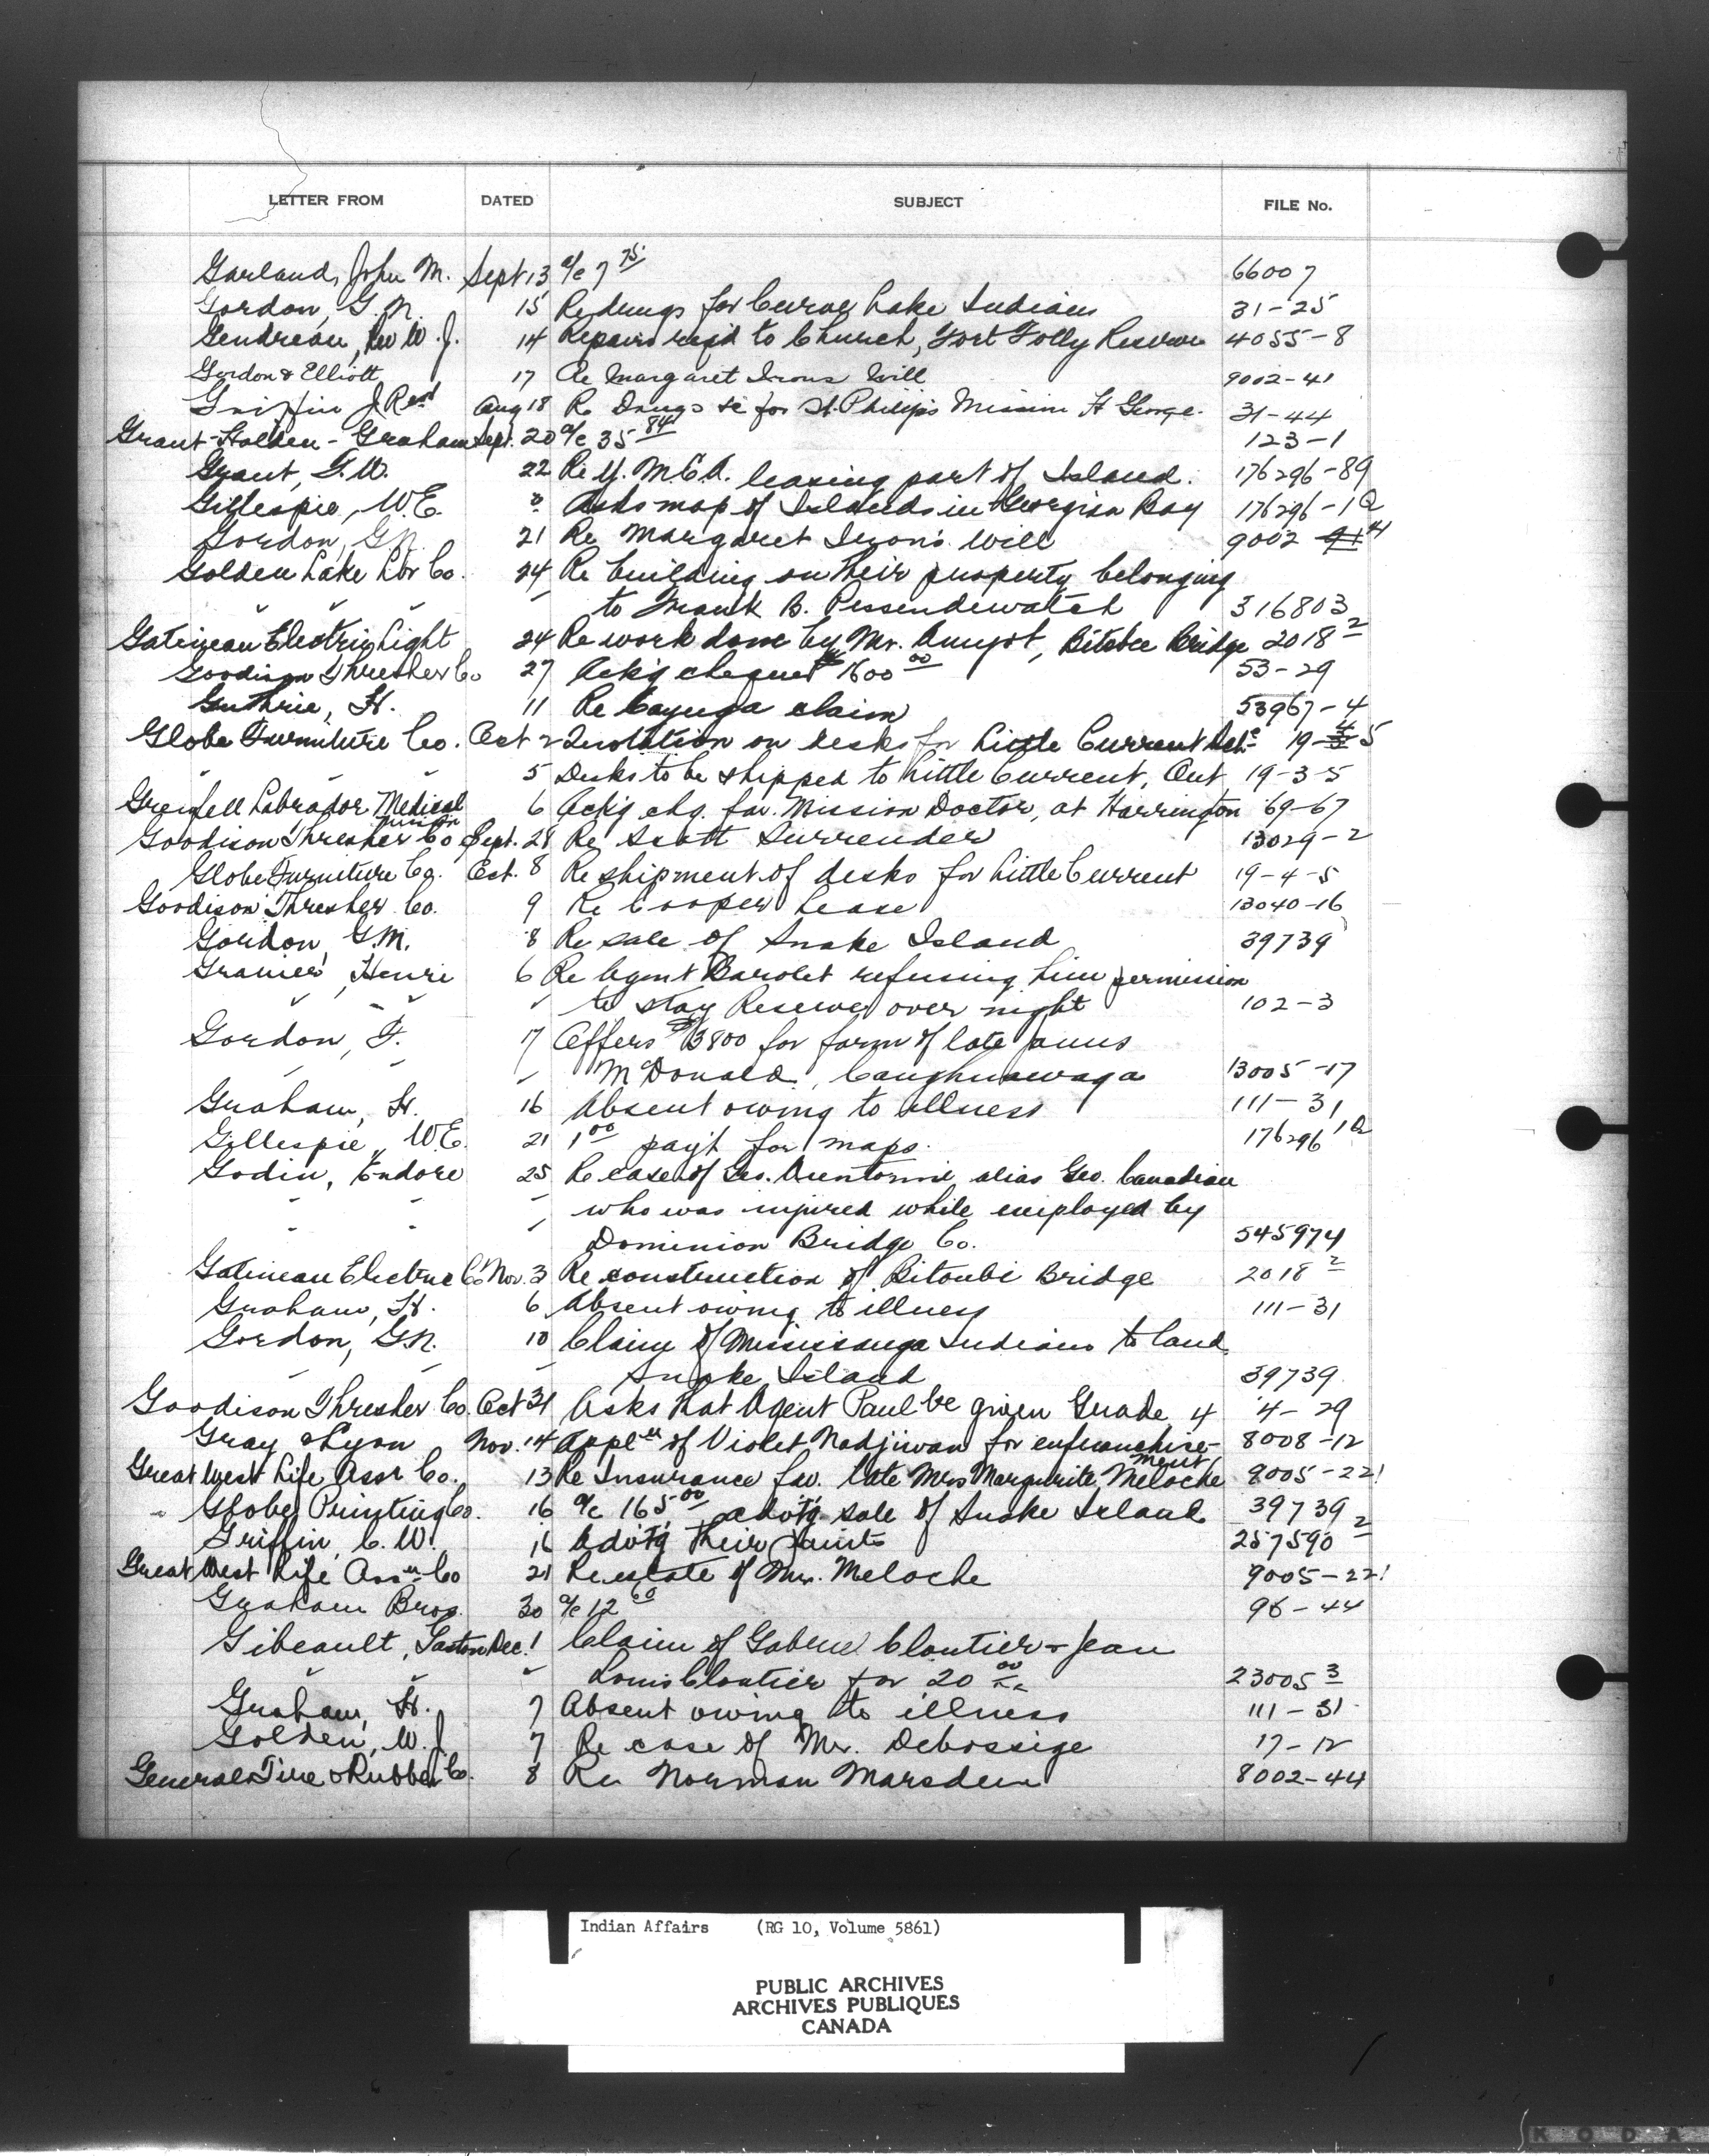 LETTER FROM DATED SUBJECT FILE No.
Garland, John M. Sept 13 a/c 7 75 66007
Gordon, G. N. 15 Re drugs for Curve Lake Indians 31-25
Gendreau, Rev W. J. 14 Repairs reqd to Church, Fort Folly Reserve 4055-8
Gordon & Elliott 17 Re Margaret Irons Will 9002-41
Griffin J Revd Aug 18 Re Drugs &c for St. Philip's Mission Ft George. 31-44
Grant-Holden-Graham Sept. 20 a/c 35 84 123-1
Grant, 22 Re Y.M.C.A. leasing part of Island. 176296-89
Gillespie, W.E. " Asks map of Islands in Georgian Bay 176296-1Q
Gordon, G.N. 21 Re Margaret Irons Will 9002
Golden Lake Lbr Co. 24 Re building on their property belonging
" " " " to Frank B. Pessendewatch 316803
Gatineau Electric Light 24 Re work done by Mr. Amyot, Bitobee Bridge 2018 2
Goodison Thresher Co 27 Ack'g cheque 1600 00 53-29
Guthrie, H. 11 Re Cayuga claim 53967-4
Globe Furniture Co. Oct 2 Quotation on desks for Little Current 19- 5
" " 5 Desks to be shipped to Little Current, Ont 19-3-5
Grenfell Labrador Medical 6 Ack'g chq. fav. Mission Doctor, at Harrington 69-67
Mission
Goodison Thresher Co Sept. 28 Re Scott Surrender 13029-2
Globe Furniture Co. Oct. 8 Re shipment of desks for Little Current 19-4-5
Goodison Thresher Co. 9 Re Cooper Lease 13040-16
Gordon, G.M. 8 Re sale of Snake Island 39739
Granier, Henri 6 Re Agent Barolet refusing him permission
" " " " to stay Reserve over night 102-3
Gordon, F. 17 Offers $3800 for farm of late James
" " " McDonald, Caughnawaga 13005-17
Graham, H. 16 Absent owing to illness 111-31
Gillespie, W.E. 21 1 00 pay't for maps. 176296 1Q
Godin, Endore 25 Re case of Geo. alias Geo. Canadian
" " " " who was injured while employed by
" " Dominion Bridge Co. 545974
Gatineau Electric Co Nov. 3 Re construction of Bitoubi Bridge 2018 2
Graham, H. 6 Absent owing to illness 111-31
Gordon, G.N. 10 Claim of Mississauga Indians to land
" " " Snake Island 39739
Goodison Thresher Co. Oct 31 Asks that Agent Paul be given Grade 4 4-29
Gray & Lyon Nov. 14 Appln of Violet Nadjiwan for enfranchise- 8008-12
ment
Great West Life Assr Co. 13 Re Insurance fav. late Mrs Marguerite Meloche 9005-22
Globe Printing Co. 16 a/c 165 00 advtg sale of Snake Island 39739
Griffin, C. W. 16 Advtg their paints 257590 2
Great West Life Assn Co 21 Re estate of Mrs. Meloche 9005-22
Graham Bros. 30 a/c 12 60 96-44
Gibeault, Gaston Dec. 1 Claim of Gabriel Cloutier & Jean
" " " Louis Cloutier for 20 00 23005 3
Graham, H. 7 Absent owing to illness 111-31
Golden, W. J. 7 Re case of Mr. Debossige 17-12
General Tire & Rubber Co. 8 Re Norman Marsden 8002-44
Indian Affairs (RG 10, Volume 5861)
PUBLIC ARCHIVES
ARCHIVES PUBLIQUES
CANADA
KODA